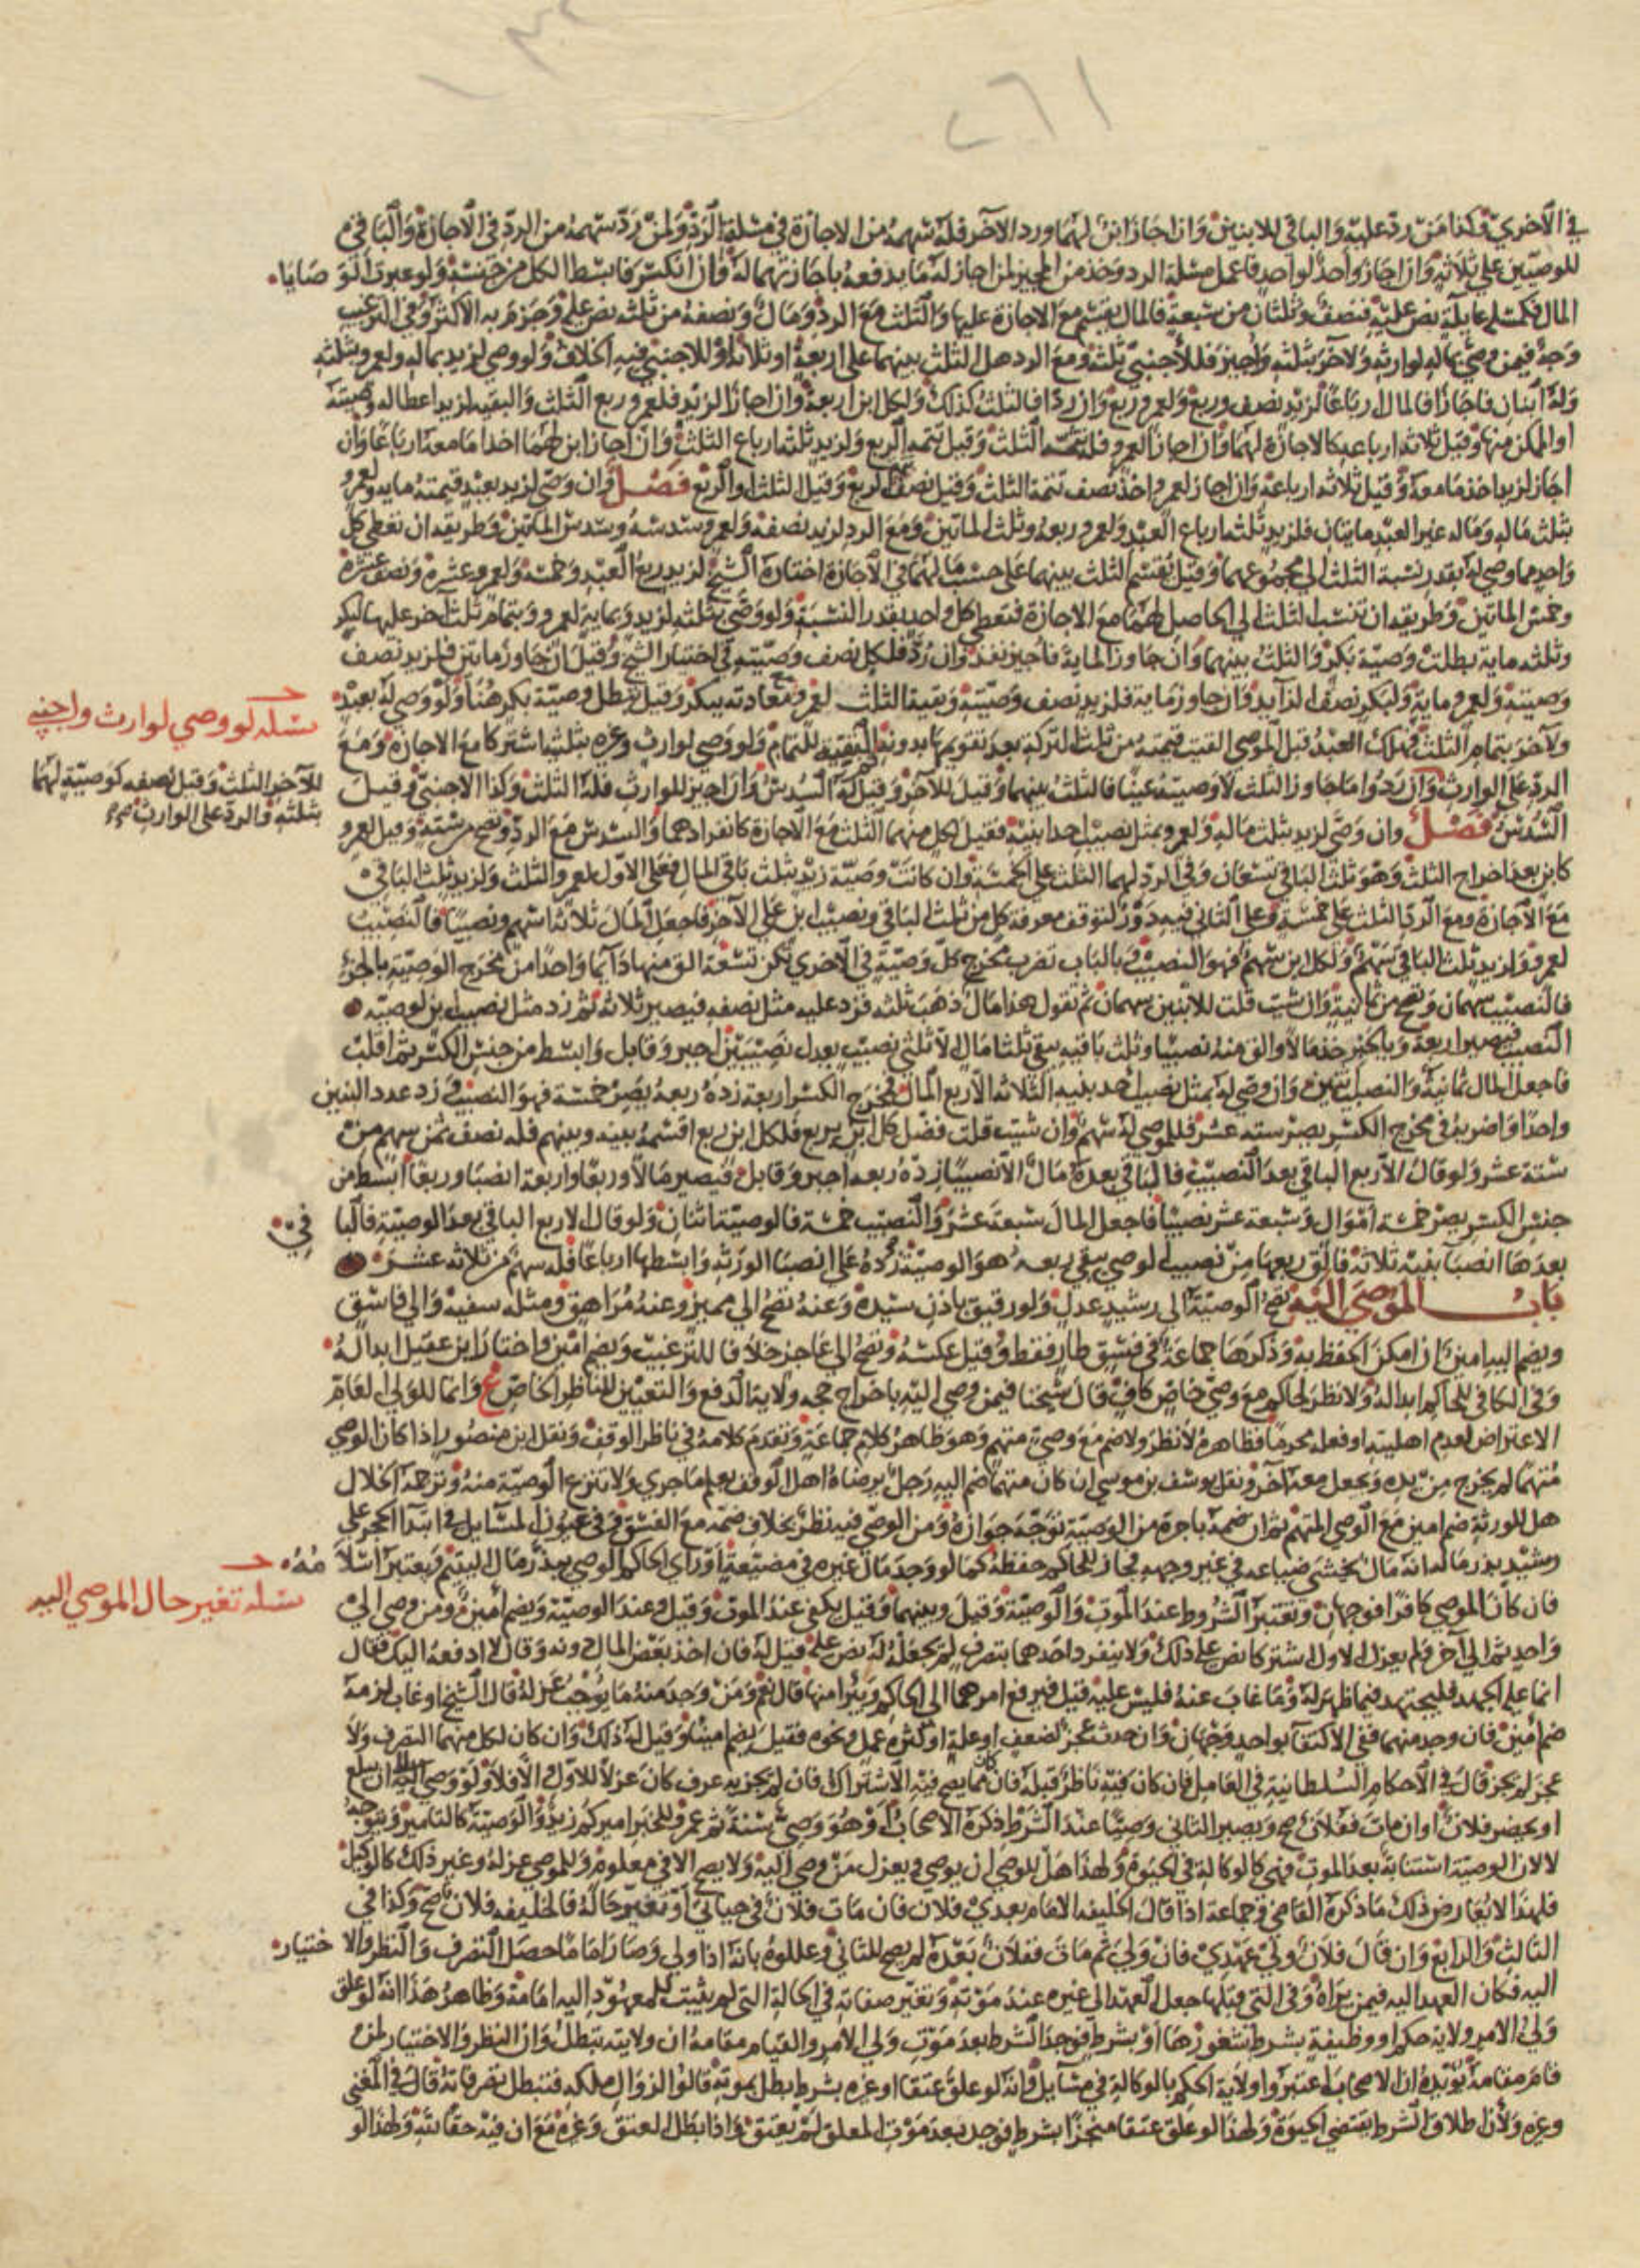 في الأخرى وكذا من رد عليه والباقي للابنين وإن أجاز ابن لهما ورد الآخر فله سهمه من الإجازة في مسئلة الرد ولمن رد سهمه من الرد في الإجازة والباقي
للوصيين على ثلاثة وإن أجاز واحد لواحد فاعمل مسئلة الرد وخذ من المجيز لمن أجاز له ما يدفعه بإجازتهما له وإن انكسر فابسط الكل من جنسه ولو عبرت الوصايا
المال فكمسئلة عايلة نص عليه فنصف وثلثان من سبعة فالمال يقسم مع الإجازة عليها والثلث مع الرد ومال ونصفه من ثلثه نص عليه وجزم به الأكثر وفي الترغيب
وجه فيمن وصى بماله لوارثه ولآخر بثلثه وأجيز فللأجنبي ثلثه ومع الرد هل الثلث بينهما على أربعة أو ثلاثة أو للأجنبي فيه الخلاف ولو وصى لزيد بماله ولعمرو بثلثه
وله ابنان فأجازا فالمال أرباعا لزيد نصف وربع ولعمرو ربع وإن ردا فالثلث كذلك ولكل ابن أربعة وإن أجازا لزيد فلعمرو ربع الثلث والبقية لزيد إعطاله وصيته
أو الممكن منها وقيل ثلاثة أرباعه كالإجازة لهما وإن أجازا لعمرو فله تتمة الثلث وقيل تتمة الربع ولزيد ثلثة أرباع الثلث وإن أجاز ابن لهما أخذا ما معه أرباعا وإن
أجاز لزيد أخذ ما معه وقيل ثلاثة أرباعه وإن أجاز لعمرو أخذ نصف تتمة الثلث وقيل نصف تتمة الربع وقيل الثلث أو الربع فصل وإن وصى لزيد بعبد قيمته مايه ولعمرو
بثلث ماله وماله غير العبد مايتان فلزيد ثلثة أرباع العبد ولعمرو ربعه وثلث المائتين ومع الرد لزيد نصفه ولعمرو سدسه وسدس المائتين وطريقه أن تعطي كل
واحد مما وصي له بقدر نسبة الثلث إلى مجموعهما وقيل يقسم الثلث بينهما على حسب ما لهما في الإجازة اختاره الشيخ لزيد ربع العبد وخمسه ولعمرو عشره ونصف عشره
وخمس المائتين وطريقه أن تنسب الثلث إلى الحاصل لهما مع الإجازة فتعطي كل واحد بقدر النسبة ولو وصى بثلثه لزيد وبماية لعمرو وبتمام ثلث آخر عليها لبكر
وثلثه ماية بطلت وصية بكر والثلث بينهما وإن جاوز الماية فأجيز نفذ وإن رد فلكل نصف وصيته في اختيار الشيخ وقيل إن جاوز مايتين فلزيد نصف
وصيته ولعمرو ماية ولبكر نصف الزايد وإن جاوز ماية فلزيد نصف وصيته وبقية الثلث لعمرو مع معادته ببكر وقيل تبطل وصية بكر هنا ولو وصى له بعبد
ولآخر بتمام الثلث فهلك العبد قبل الموصي القيت قيمته من ثلث التركة بعد تقويمها بدونه ثم البقية للتمام ولو وصى لوارث وغيره بثلثيه اشتركا مع الإجازة ومع
مسئلة لو وصي لوارث واجنبي
للآخر الثلث وقيل نصفه كوصيته لهما
بثلثه والرد على الوارث صح
الرد على الوارث وإن ردوا ما جاوز الثلث لا وصية عينا فالثلث بينهما وقيل للآخر وقيل له السدس وإن أجيز للوارث فله الثلث وكذا الأجنبي وقيل
السدس فصل وإن وصى لزيد بثلث ماله ولعمرو بمثل نصيب أحد ابنيه فقيل لكل منهما الثلث مع الإجازة كانفرادهما والسدس مع الرد وتصح من ستة وقيل لعمرو
كابن بعد إخراج الثلث وهو ثلث الباقي تسعان وفي الرد لهما الثلث على الخمسة وإن كانت وصية زيد بثلث باقي المال فعلى الأول لعمرو الثلث ولزيد ثلث الباقي
مع الإجازة ومع الرد الثلث على خمسة وعلى الثاني فيه دور لتوقف معرفة كل من ثلث الباقي ونصيب ابن على الآخر فاجعل المال ثلاثة أسهم ونصيبا فالنصيب
لعمرو ولزيد ثلث الباقي سهم ولكل ابن سهم فهو النصيب وبالباب تضرب مخرج كل وصية في الأخرى تكن تسعة الق منها دايما واحدا من مخرج الوصية بالجزء
فالنصيب سهمان وتصح من ثمانية وإن شيت قلت للابنين سهمان ثم تقول هذا مال ذهب ثلثه فزد عليه مثل نصفه فيصير ثلاثة ثم زد مثل نصيب ابن لوصيه
النصيب فيصير أربعة وبالجبر خذ مالا والق منه نصيبا وثلث باقيه يبق ثلثا مال إلا ثلثي نصيب يعدل نصيبين اجبر وقابل وابسط من جنس الكسر ثم اقلب
فاجعل المال ثمانية والنصيب اثنين وإن وصى له بمثل نصيب أحد بنيه الثلاثة إلا ربع المال فمخرج الكسر أربعة زده ربعه يصر خمسة فهو النصيب وزد عدد البنين
واحدا واضربه في مخرج الكسر يصر ستة عشر فللموصى له سهم وإن شيت قلت فضل كل ابن بربع فلكل ابن ربع اقسمه بينه وبينهم فله نصف ثمن سهم من
ستة عشر ولو قال إلا ربع الباقي بعد النصيب فالباقي بعده مال إلا نصيبا زده ربعه اجبر وقابل فيصير مالا وربعا وأربعة أنصبا وربعا ابسط من
جنس الكسر يصر خمسة أموال وسبعة عشر نصيبا فاجعل المال سبعة عشر والنصيب خمسة فالوصية اثنان ولو قال إلا ربع الباقي بعد الوصية فالبا في
بعدها أنصبا بنيه ثلاثة فالق ربعها من نصيب الموصي يبقى ربعه هو الوصية زده على أنصبا الورثة وابسطها أرباعا فله سهم من ثلاثة عشر
باب الموصى إليه تصح الوصية إلى رشيد عدل ولو رقيق بإذن سيده وعنه تصح إلى مميز وعنه مراهق ومثله سفيه وإلى فاسق
ويضم إليه أمين إن أمكن الحفظ به وذكرها جماعة في فسق طار فقط وقيل عكسه وتصح إلى عاجز خلافا للترغيب ويضم أمين واختار ابن عقيل إبداله
وفي الكافي للحاكم إبداله ولا نظر لحاكم مع وصي خاص كاف قال شيخنا فيمن وصي إليه بإخراج حجه ولاية الدفع والتعيين للناظر الخاص ع وإنما للولي العام
الاعتراض لعدم أهليته أو فعله محرما فظاهره لا نظر ولا ضم مع وصي متهم وهو ظاهر كلام جماعة وتقدم كلامه في ناظر الوقف ونقل ابن منصور إذا كان الوصي
متهما لم يخرج من يده ويجعل معه آخر ونقل يوسف بن موسى إن كان متهما ضم إليه رجل يرضاه أهل الوقف يعلم ما جرى ولا تنزع الوصية منه وترجمه الخلال
هل للورثة ضم أمين مع الوصي المتهم ثم إن ضمه بأجرة من الوصية توجه جوازه ومن الوصي فيه نظر بخلاف ضمه مع الفسق وفي عيون المسايل في ابتدا الحجر على
رشيد يبذر ماله أنه مال يخشى ضياعه في غير وجهه فجاز للحاكم حفظه كما لو وجد مال غيره في مضيعة أو رأى الحاكم الوصي يبذر مال اليتيم ويعتبر إسلامه
مسئلة تغير حال الموصي اليه
فإن كان الموصي كافرا فوجهان وتعتبر الشروط عند الموت والوصية وقيل وبينهما وقيل يكفي عند الموت وقيل وعند الوصية ويضم أمين ومن وصى إلى
واحد ثم إلى آخر ولم يعزل الأول اشتركا نص على ذلك ولا ينفرد أحدهما بتصرف لم يجعله له نص عليه قيل له فإن أخذ بعض المال دونه وقال لا أدفعه إليك فقال
إنما على الجهد فليجتهد فيما ظهر له وما غاب عنه فليس عليه قيل فيرفع أمرهما إلى الحاكم ويبرأ منها قال نعم ومن وجد منه ما يوجب عزله قال الشيخ أو غاب لزمه
ضم أمين فإن وجد منهما ففي الاكتفا بواحد وجهان وإن حدث عجز لضعف أو علة أو كثرة عمل ونحوه فقيل يضم أمينا وقيل له ذلك وإن كان لكل منهما التصرف ولا
عجز لم يجز قال في الأحكام السلطانية في العامل فإن كان فيه ناظر قبله فإن كان مما يصح فيه الاشتراك فإن لم يجز به عرف كان عزلا للأول وإلا فلا ولو وصى إليه إن بلغ
أو يحضر فلان أو إن مات ففلان صح ويصير الثاني وصيا عند الشرط ذكره الأصحاب أو هو وصي سنة ثم عمرو للخبر أميركم زيد والوصية كالتأمير ويتوجه
لا لأن الوصية استنابة بعد الموت فهي كالوكالة في الحيوة ولهذا هل للوصي أن يوصي ويعزل من وصى إليه ولا يصح إلا في معلوم وللموصي عزله وغير ذلك كالوكيل
فلهذا لا يعارض ذلك ما ذكره القاضي وجماعة إذا قال الخليفة الإمام بعدي فلان فإن مات فلان في حياتي أو تغير حاله فالخليفة فلان صح وكذا في
الثالث والرابع وإن قال فلان ولي عهدي فإن ولي ثم مات ففلان بعده لم يصح للثاني وعللوه بأنه إذا ولي وصار إماما حصل التصرف والنظر والاختيار
إليه فكان العهد إليه فيمن يراه وفي التي قبلها جعل العهد إلى غيره عند موته وتغير صفاته في الحالة التي لم يثبت للمعهود إليه إمامة وظاهر هذا أنه لو علق
ولي الأمر ولاية حكم أو وظيفة بشرط شغورها أو بشرط فوجد الشرط بعد موت ولي الأمر والقيام مقامه أن ولايته تبطل وأن النظر والاختيار لمن
قام مقامه يؤيده أن الأصحاب اعتبروا ولاية الحكم بالوكالة في مسايل وأنه لو علق عتقا أو غيره بشرط بطل بموته قالوا لزوال ملكه فتبطل تصرفاته قال في المغني
وغيره ولأن إطلاق الشرط يقتضي الحيوة ولهذا لو علق عتقا منجزا بشرط فوجد بعد موت المعلق لم يعتق وإذا بطل العتق وغيره مع أن فيه حقا لله ولهذا لو